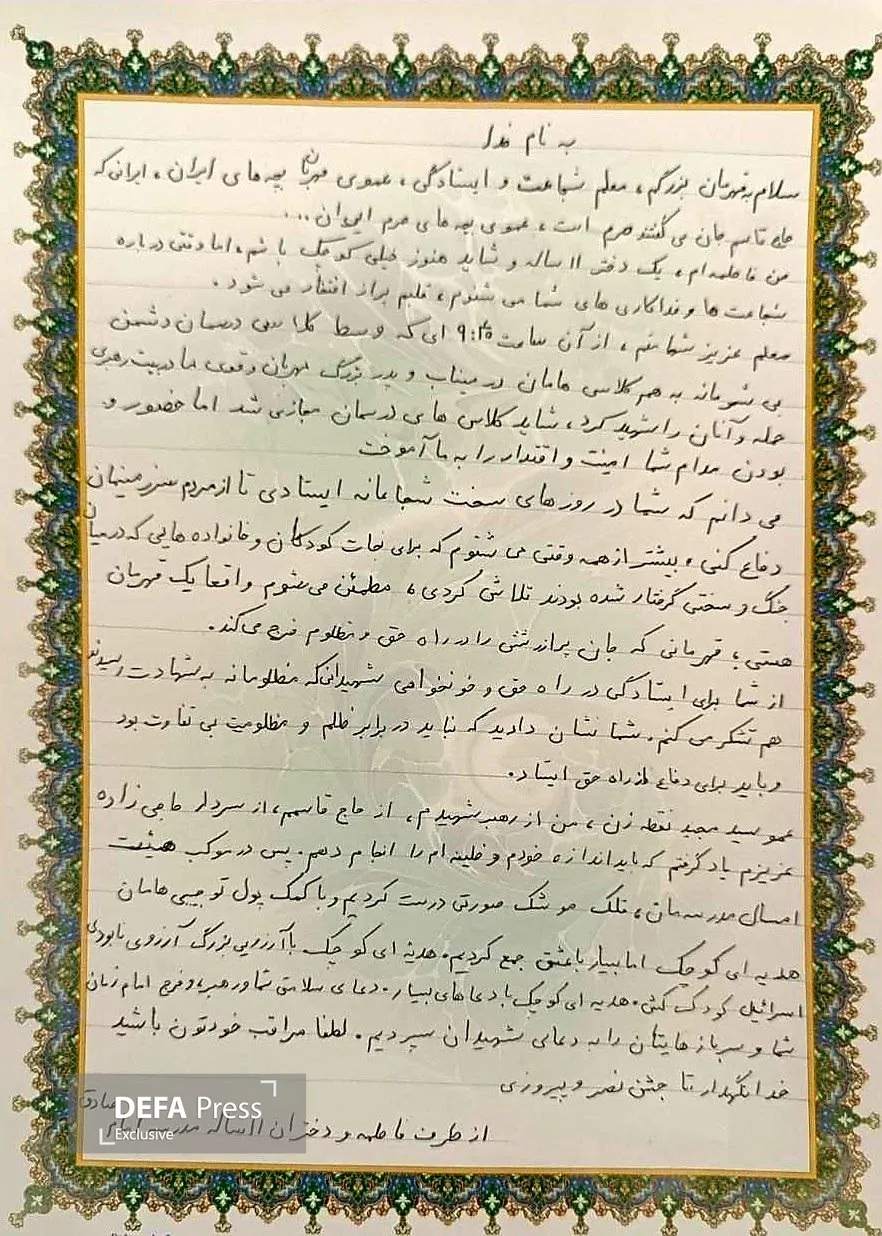 به نام خدا
سلام به قهرمان بزرگم، معلم شجاعت و ایستادگی، عموی مهربان بچه های ایران، ایرانی که
حاج قاسم جان می گفتند حرم است، عموی بچه های حرم ایران...
من فاطمه‌ام، یک دختر ۱۱ ساله و شاید هنوز خیلی کوچک باشم، اما وقتی درباره
شجاعت ها و فداکاری های شما می شنوم، قلبم پر از افتخار می شود.
معلم عزیز شما بودید، از آن ساعت ای که وسط کلاسی درسمان دشمن
بی شرمانه به هم کلاسی هامان در میناب و پدر بزرگ مهربان و قوی ما در بیت رهبری
حمله و آنان را شهید کرد، شاید کلاس های درسمان مجازی شد اما حضور و
بودن مدام شما امنیت و اقتدار را به ما آموخت
می دانم که شما در روزهای سخت شجاعانه ایستادی تا از مردم سرزمینمان
دفاع کنی، بیشتر از همه وقتی می شنوم که برای نجات کودکان و خانواده هایی که در میان
جنگ و سختی گرفتار شده بودند تلاش کردی، مطمئن می شوم واقعا یک قهرمان
هستی، قهرمانی که جان پر ارزشش را در راه حق و مظلوم خرج می کند.
از شما برای ایستادگی در راه حق و خونخواهی شهیدانی که مظلومانه به شهادت رسیدند
هم تشکر می کنم. شما نشان دادید که نباید در برابر ظلم و مظلومیت بی تفاوت بود
و باید برای دفاع از راه حق ایستاد.
عمو سید مجید نقطه زن، من از رهبر شهیدم، از حاج قاسمم، از سردار حاجی زاده
عزیزم یاد گرفتم که باید اندازه خودم وظیفه ام را انجام دهم. پس در موکب هیئت
امسال مدرسه‌مان، قلک موشک صورتی درست کردیم و با کمک پول تو جیبی هامان
هدیه ای کوچک اما بسیار با عشق جمع کردیم. هدیه ای کوچک با آرزویی بزرگ آرزوی نابودی
اسرائیل کودک کش. هدیه ای کوچک با دعاهای بسیار. دعای سلامتی شما و رهبر و فرج امام زمان
شما و سربازهایتان را به دعای شهیدان سپردیم. لطفا مراقب خودتون باشید
خدانگهدار تا جشن نصر و پیروزی
از طرف فاطمه و دختران ۱۱ ساله مدرسه امام صادق
DEFA Press
Exclusive